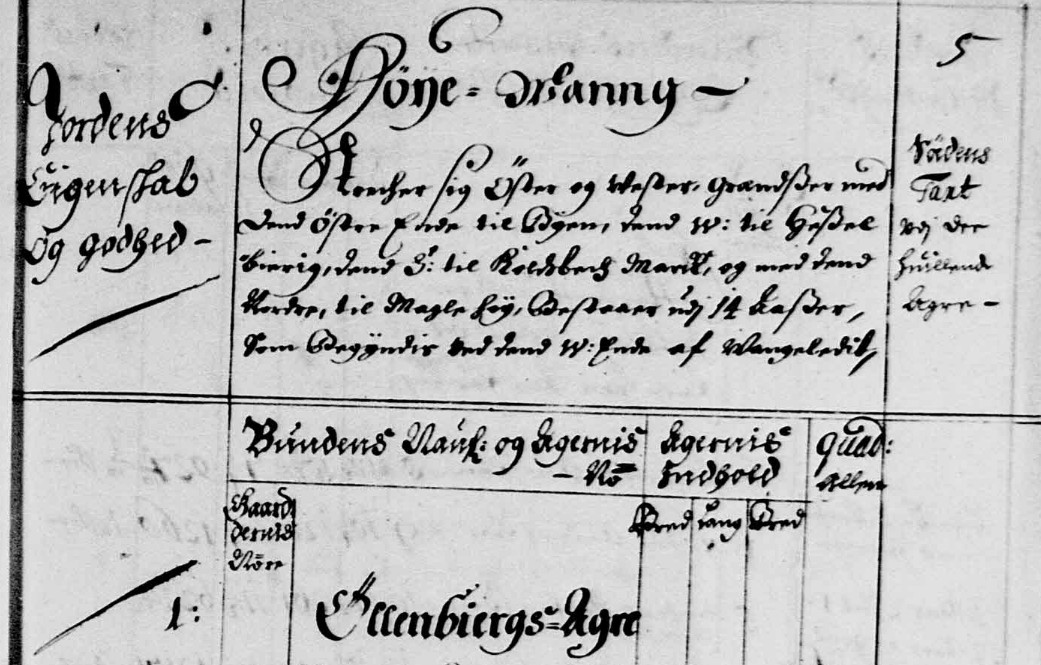 5
Jordens
Eigenskab
og godhed -
Höye = Wanng -
Strecher sig Öster og Wester, grandser med
dend Östre Ende til Byen, dend W: til Hessel
bierig, dend S: til Koldsbech March, og med dend
Nordre, til Magle höy, Bestaaer udj 14 Aasser,
Som Begÿndis ved dend W: Ende af Wangeledit,
Sædens
Taxt
paa de
huillende
Agre -
Bundens Nauf: og Agernis
- No
Agernis
Indhold
Quad:
Allen
Gaard
dernis
Nõre
Bred
Lang
Bred
1:
Ellenbiergs = Agre